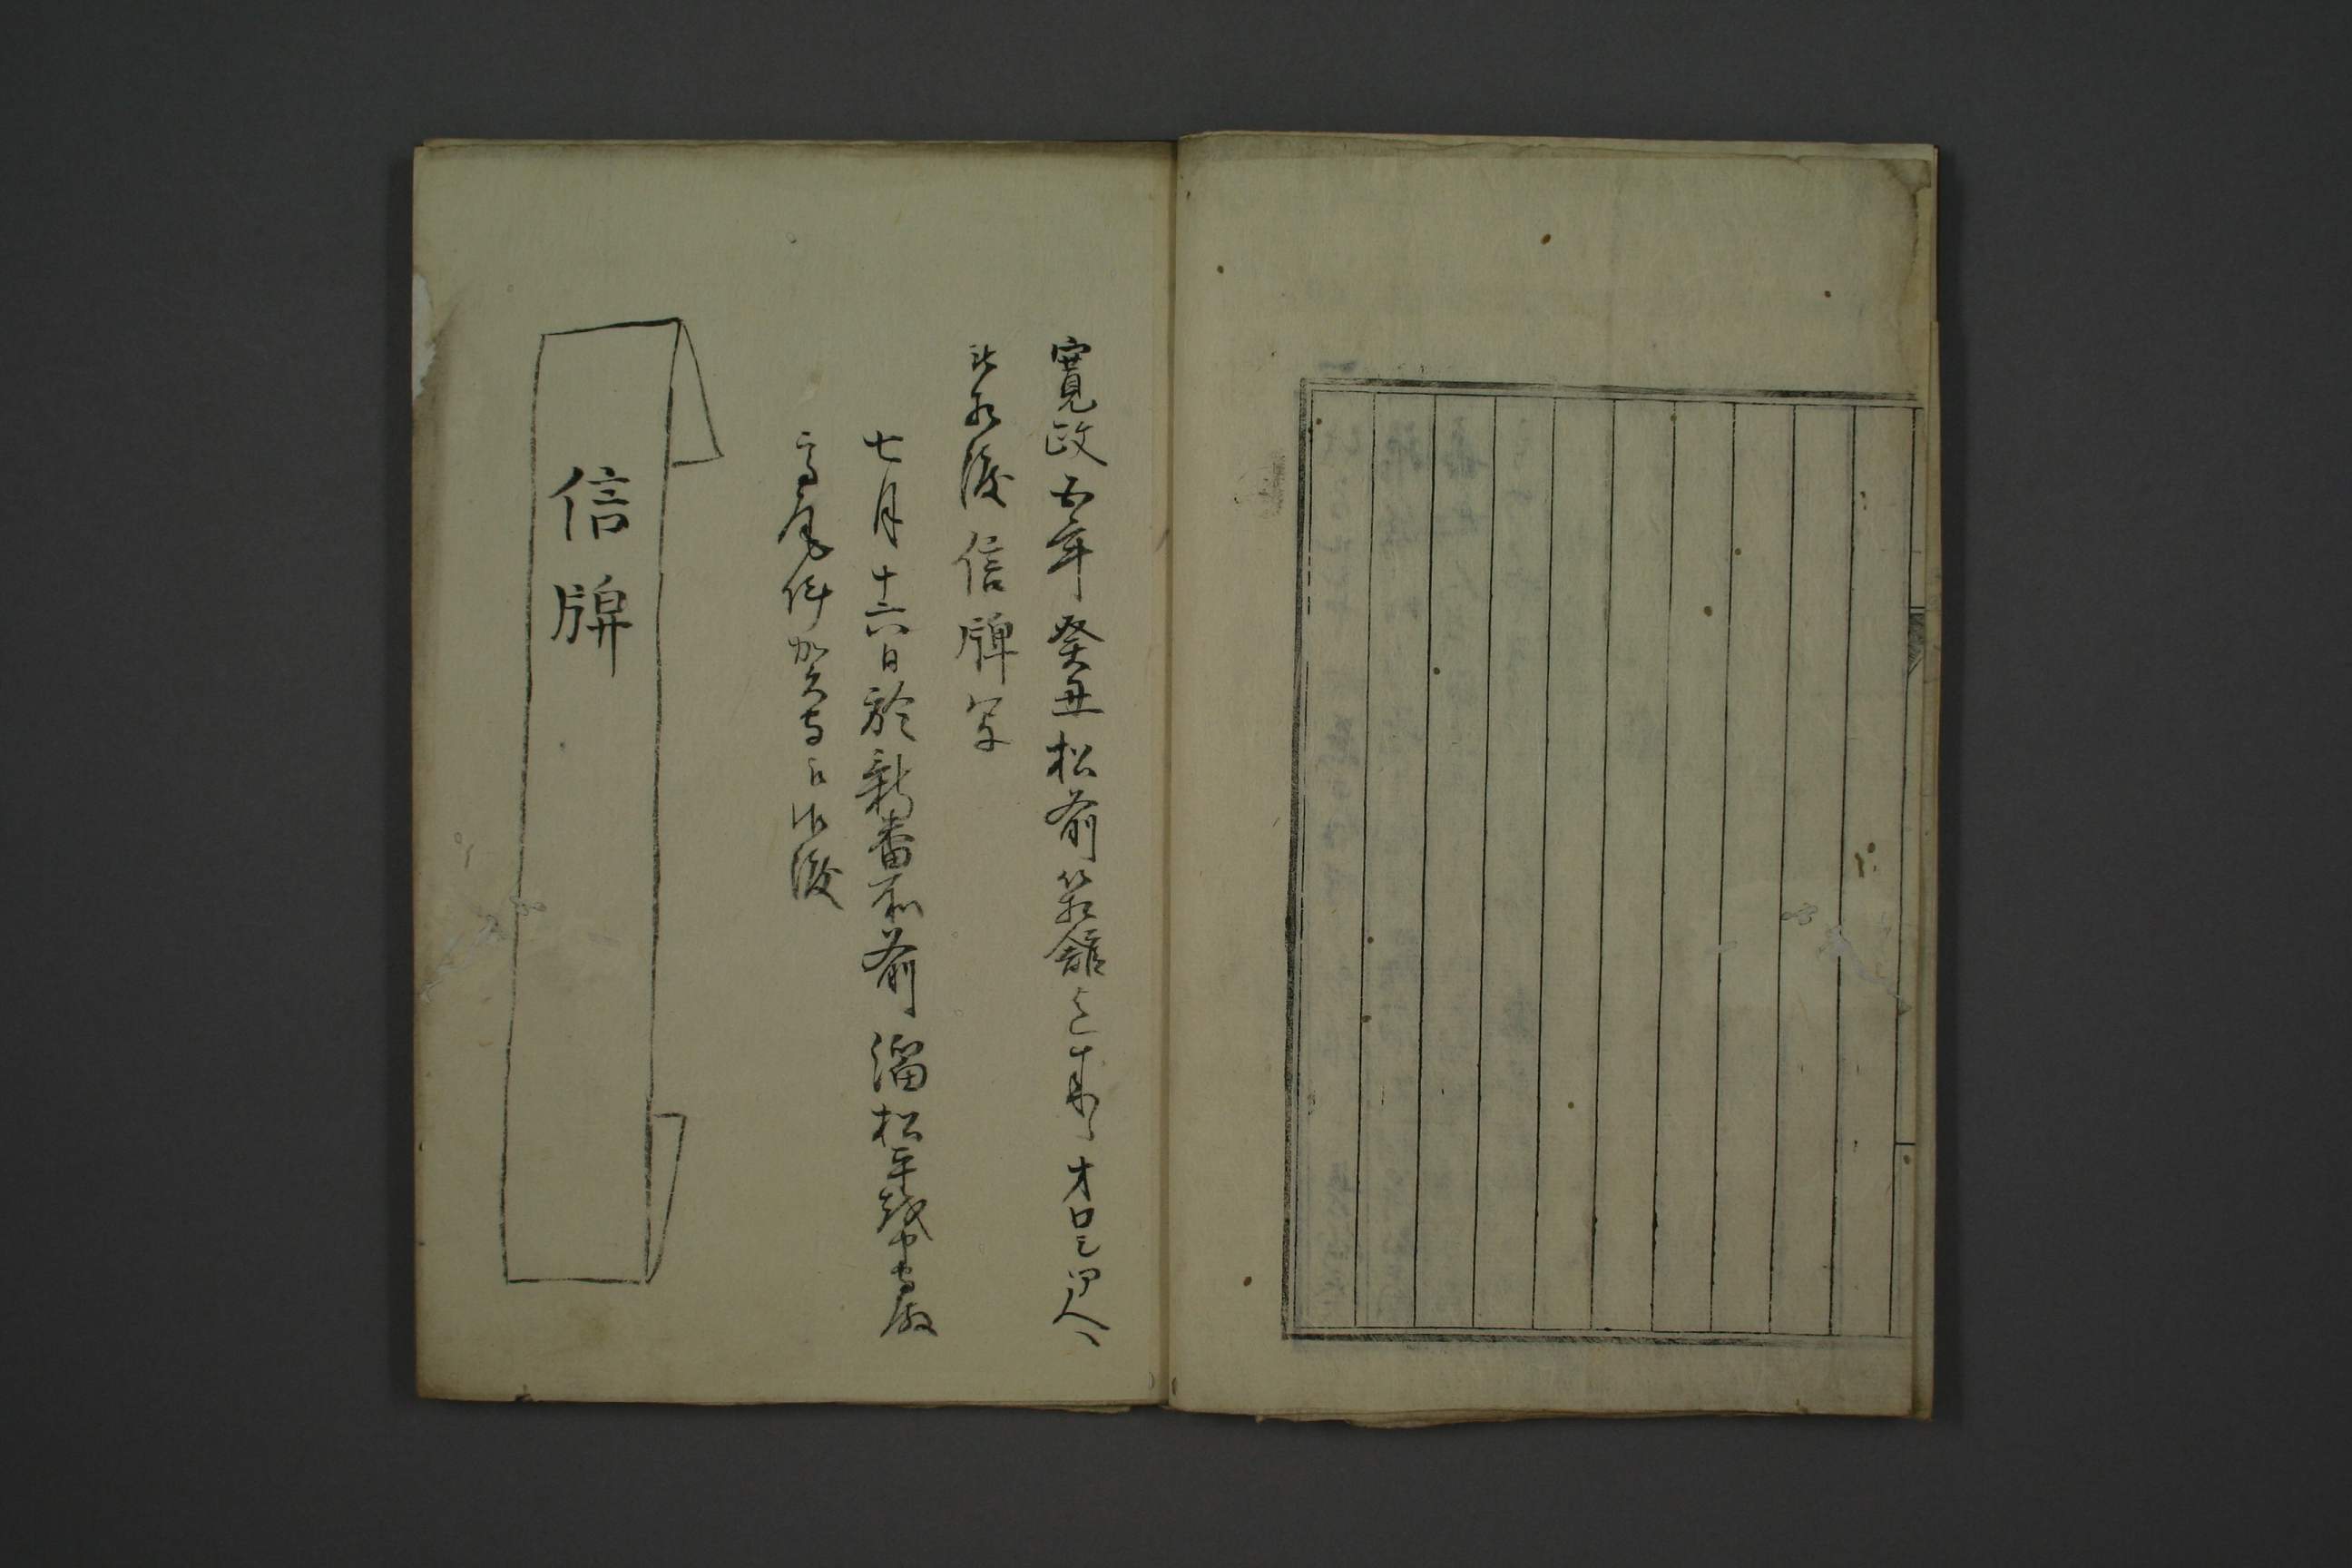 寛政五年癸丑松前箱館ニ来ルオロシヤ人ヘ
被相渡信牌写
七月十六日於新番所前溜松平越中守殿
高尾伊賀守ヘ御渡
信牌